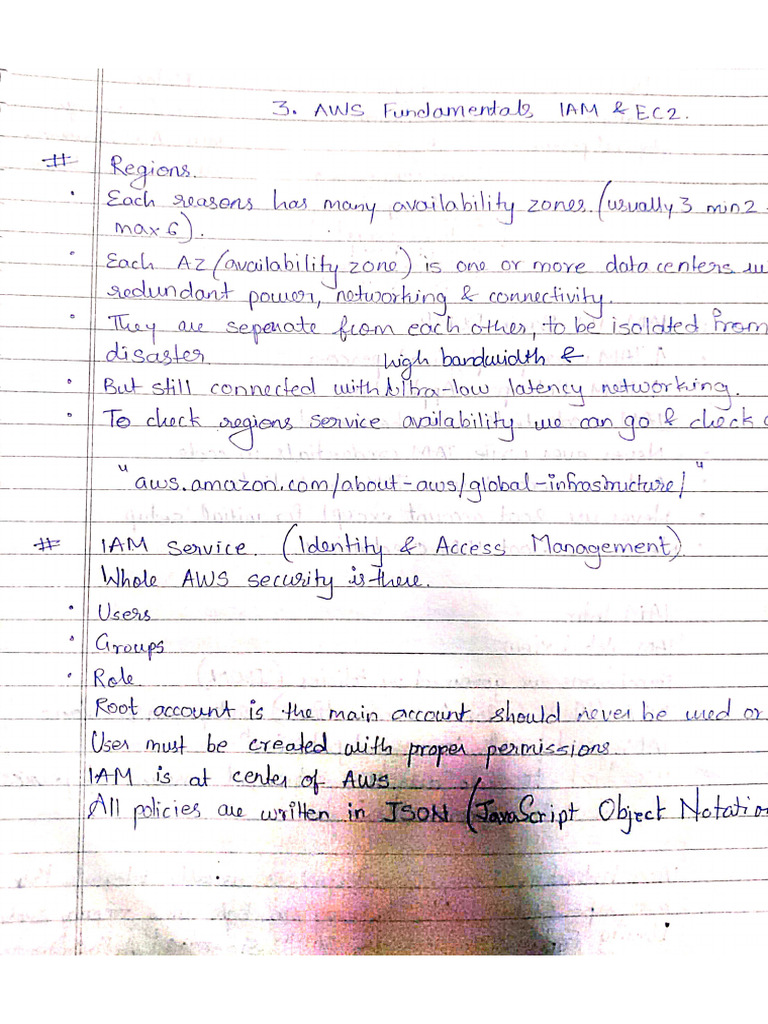 3. AWS Fundamentals IAM & EC2.
# Regions.
• Each reasons has many availability zones. (usually 3 min 2
max 6).
• Each AZ (availability zone) is one or more data centers
redundant power, networking & connectivity.
• They are seperate from each other, to be isolated from
disaster.
high bandwidth &
• But still connected with ultra-low latency networking.
• To check regions service availability we can go & check
"aws.amazon.com/about-aws/global-infrastructure/"
# IAM Service. (Identity & Access Management)
Whole AWS security is there.
• Users
• Groups
• Role.
Root account is the main account should never be used or
User must be created with proper permissions.
IAM is at center of AWS.
All policies are written in JSON (JavaScript Object Notatio